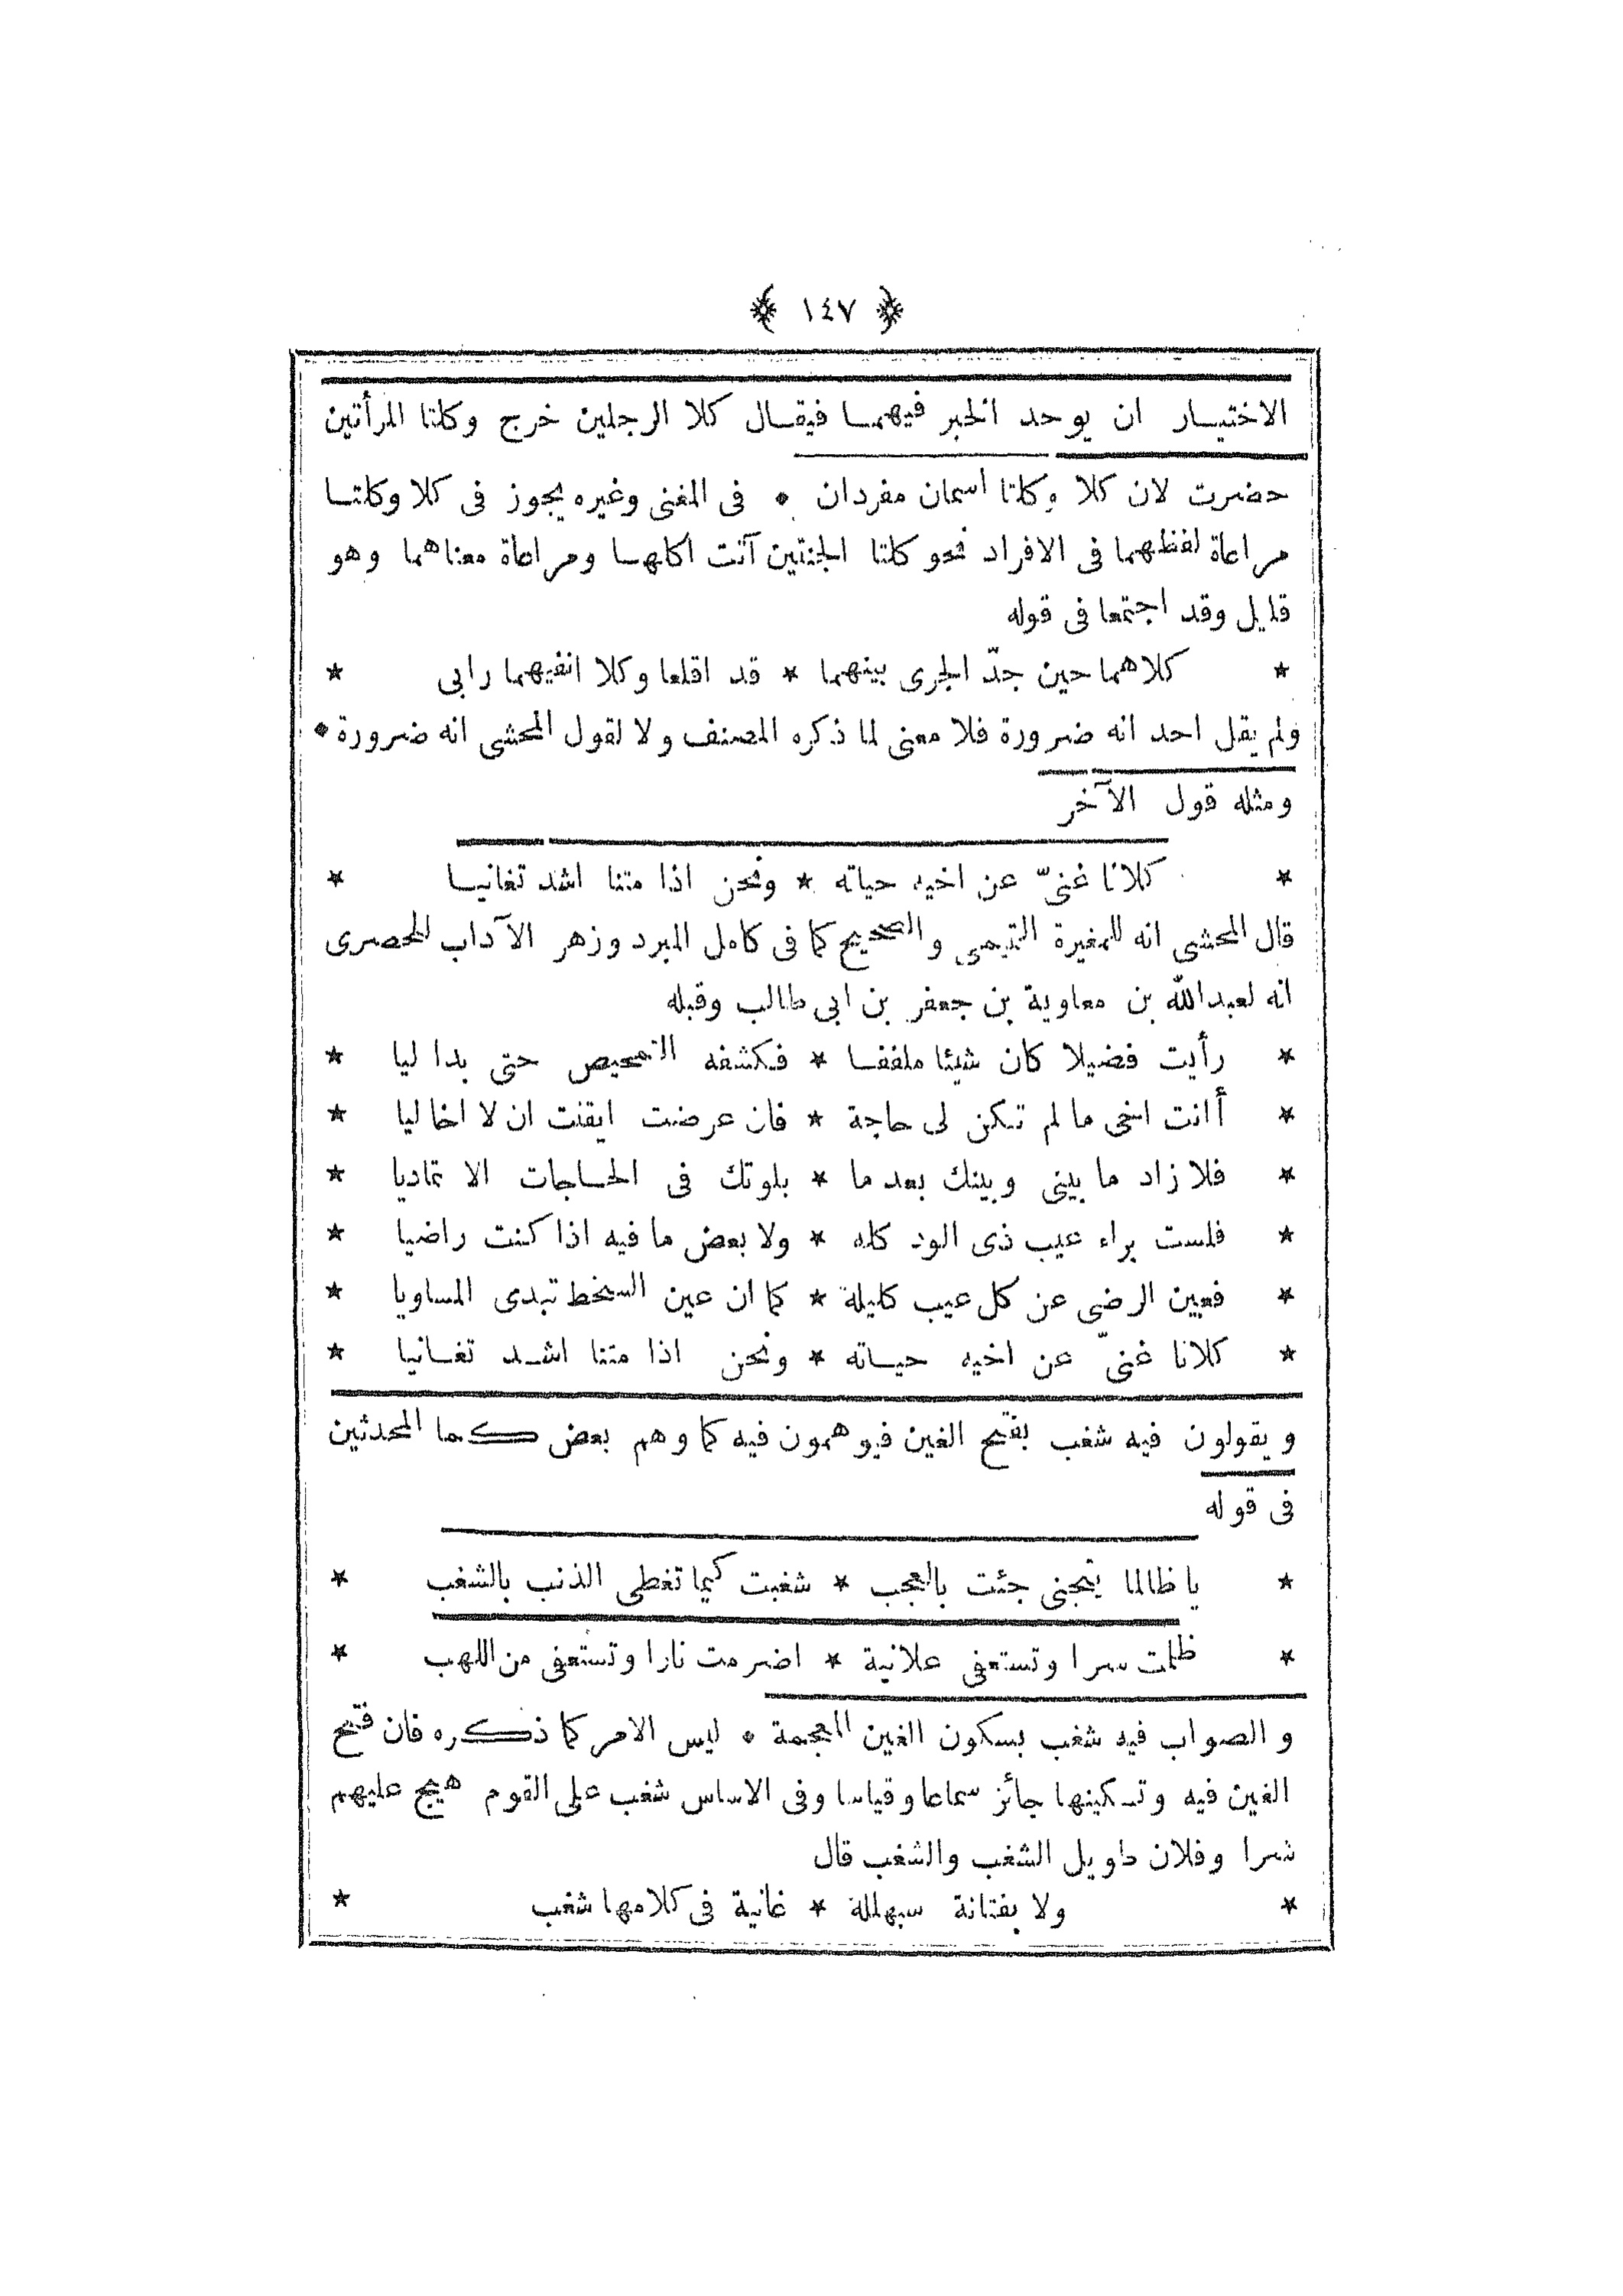 ﴿ ١٤٧ ﴾
الاختيار ان يوحد الخبر فيهما فيقال كلا الرجلين خرج وكلتا المرأتين
حضرت لان كلا وكلتا اسمان مفردان • فى المغنى وغيره يجوز فى كلا وكلتا
مراعاة لفظهما فى الافراد نحو كلتا الجنتين آتت اكلها ومراعاة معناهما وهو
قليل وقد اجتمعا فى قوله
* كلاهما حين جدّ الجرى بينهما * قد اقلعا وكلا انفيهما رابى *
ولم يقل احد انه ضرورة فلا معنى لما ذكره المصنف ولا لقول المحشى انه ضرورة •
ومثله قول الآخر
* كلانا غنىّ عن اخيه حياته * ونحن اذا متنا اشد تغانيا *
قال المحشى انه للمغيرة التيمى والصحيح كما فى كامل المبرد وزهر الآداب للحصرى
انه لعبدالله بن معاوية بن جعفر بن ابى طالب وقبله
* رأيت فضيلا كان شيئا ملففا * فكشفه التمحيص حتى بدا ليا *
* أانت اخى ما لم تكن لى حاجة * فان عرضت ايقنت ان لا اخا ليا *
* فلا زاد ما بينى وبينك بعد ما * بلوتك فى الحاجات الا تماديا *
* فلست براء عيب ذى الود كله * ولا بعض ما فيه اذا كنت راضيا *
* فعين الرضى عن كل عيب كليلة * كما ان عين السخط تبدى المساويا *
* كلانا غنىّ عن اخيه حياته * ونحن اذا متنا اشد تغانيا *
ويقولون فيه شغب بفتح الغين فيوهمون فيه كما وهم بعض كما المحدثين
فى قوله
* يا ظالما يتجنى جئت بالعجب * شغبت كيما تغطى الذنب بالشغب *
* ظلمت سرا وتستعفى علانية * اضرمت نارا وتستعفى من اللهب *
والصواب فيه شغب بسكون الغين المعجمة • ليس الامر كما ذكره فان فتح
الغين فيه وتسكينها جائز سماعا وقياسا وفى الاساس شغب على القوم هيج عليهم
شرا وفلان طويل الشغب والشغب قال
* ولا بفتانة سبهللة * غانية فى كلامها شغب *